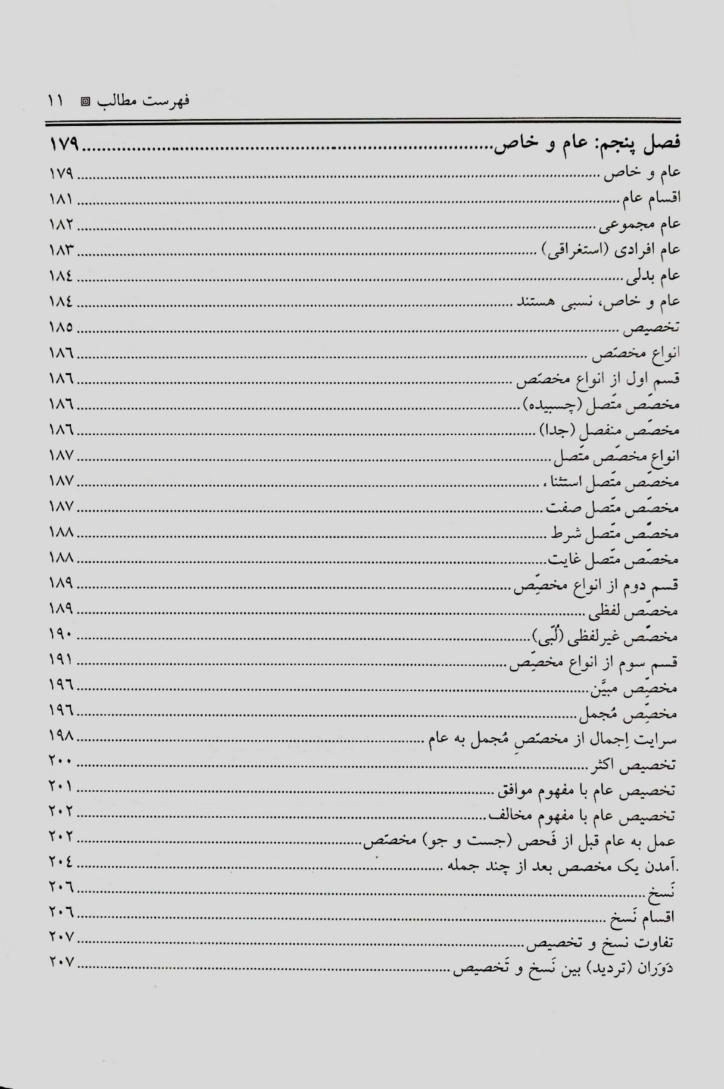 فهرست مطالب ▣ ۱۱
فصل پنجم: عام و خاص ........ ۱۷۹
عام و خاص ........ ۱۷۹
اقسام عام ........ ۱۸۱
عام مجموعی ........ ۱۸۲
عام افرادی (استغراقی) ........ ۱۸۳
عام بدلی ........ ۱۸٤
عام و خاص، نسبی هستند ........ ۱۸٤
تخصیص ........ ۱۸۵
انواع مخصّص ........ ۱۸٦
قسم اول از انواع مخصّص ........ ۱۸٦
مخصّص متّصل (چسبیده) ........ ۱۸٦
مخصّص منفصل (جدا) ........ ۱۸٦
انواع مخصّص متّصل ........ ۱۸۷
مخصّص متّصل استثناء ........ ۱۸۷
مخصّص متّصل صفت ........ ۱۸۷
مخصّص متّصل شرط ........ ۱۸۸
مخصّص متّصل غایت ........ ۱۸۸
قسم دوم از انواع مخصِّص ........ ۱۸۹
مخصّص لفظی ........ ۱۸۹
مخصّص غیرلفظی (لُبّی) ........ ۱۹۰
قسم سوم از انواع مخصِّص ........ ۱۹۱
مخصِّص مبیَّن ........ ۱۹٦
مخصِّص مُجمل ........ ۱۹٦
سرایت اِجمال از مخصّصِ مُجمل به عام ........ ۱۹۸
تخصیص اکثر ........ ۲۰۰
تخصیص عام با مفهوم موافق ........ ۲۰۱
تخصیص عام با مفهوم مخالف ........ ۲۰۲
عمل به عام قبل از فَحص (جست و جو) مخصّص ........ ۲۰۲
آمدن یک مخصص بعد از چند جمله ........ ۲۰٤
نَسخ ........ ۲۰٦
اقسام نَسخ ........ ۲۰٦
تفاوت نسخ و تخصیص ........ ۲۰۷
دَوَران (تردید) بین نَسخ و تَخصیص ........ ۲۰۷